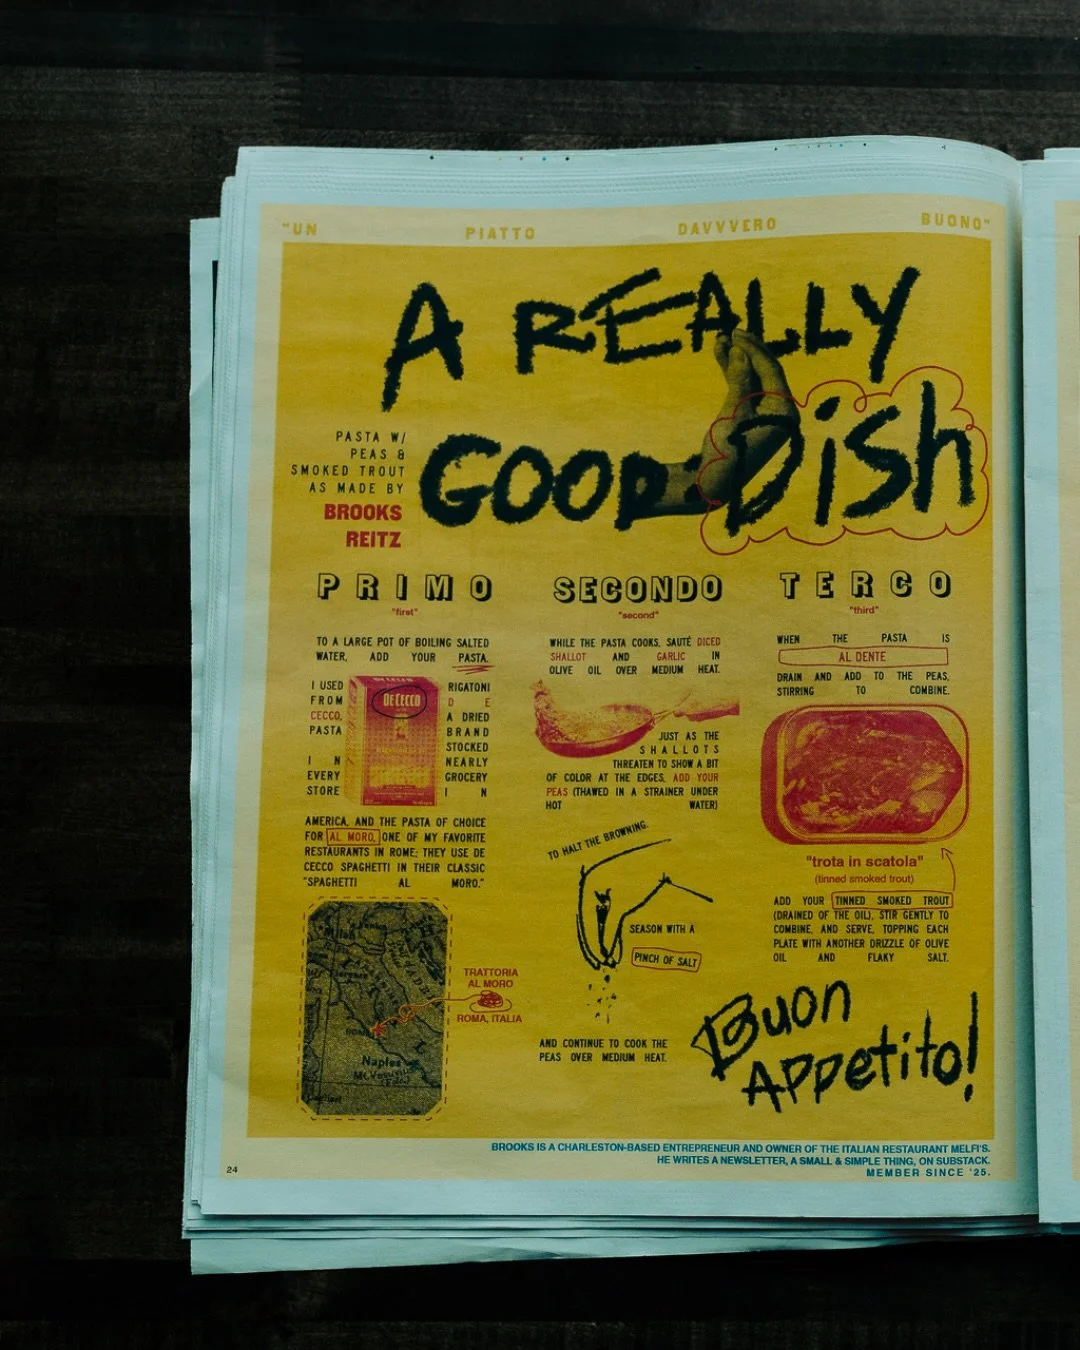 "UN PIATTO DAVVVERO BUONO"
A REALLY
GOOD DISH
PASTA W/
PEAS &
SMOKED TROUT
AS MADE BY
BROOKS
REITZ
PRIMO
"first"
TO A LARGE POT OF BOILING SALTED
WATER, ADD YOUR PASTA.
I USED RIGATONI
FROM DE
CECCO, A DRIED
PASTA BRAND
STOCKED
IN NEARLY
EVERY GROCERY
STORE IN
DE CECCO
AMERICA, AND THE PASTA OF CHOICE
FOR AL MORO, ONE OF MY FAVORITE
RESTAURANTS IN ROME; THEY USE DE
CECCO SPAGHETTI IN THEIR CLASSIC
"SPAGHETTI AL MORO."
Naples
Mt. Vesuvius
TRATTORIA
AL MORO
ROMA, ITALIA
SECONDO
"second"
WHILE THE PASTA COOKS, SAUTÉ DICED
SHALLOT AND GARLIC IN
OLIVE OIL OVER MEDIUM HEAT.
JUST AS THE
SHALLOTS
THREATEN TO SHOW A BIT
OF COLOR AT THE EDGES, ADD YOUR
PEAS (THAWED IN A STRAINER UNDER
HOT WATER)
TO HALT THE BROWNING.
SEASON WITH A
PINCH OF SALT
AND CONTINUE TO COOK THE
PEAS OVER MEDIUM HEAT.
TERCO
"third"
WHEN THE PASTA IS
AL DENTE
DRAIN AND ADD TO THE PEAS,
STIRRING TO COMBINE.
"trota in scatola"
(tinned smoked trout)
ADD YOUR TINNED SMOKED TROUT
(DRAINED OF THE OIL), STIR GENTLY TO
COMBINE, AND SERVE, TOPPING EACH
PLATE WITH ANOTHER DRIZZLE OF OLIVE
OIL AND FLAKY SALT.
Buon
Appetito!
BROOKS IS A CHARLESTON-BASED ENTREPRENEUR AND OWNER OF THE ITALIAN RESTAURANT MELFI'S.
HE WRITES A NEWSLETTER, A SMALL & SIMPLE THING, ON SUBSTACK.
MEMBER SINCE '25.
24